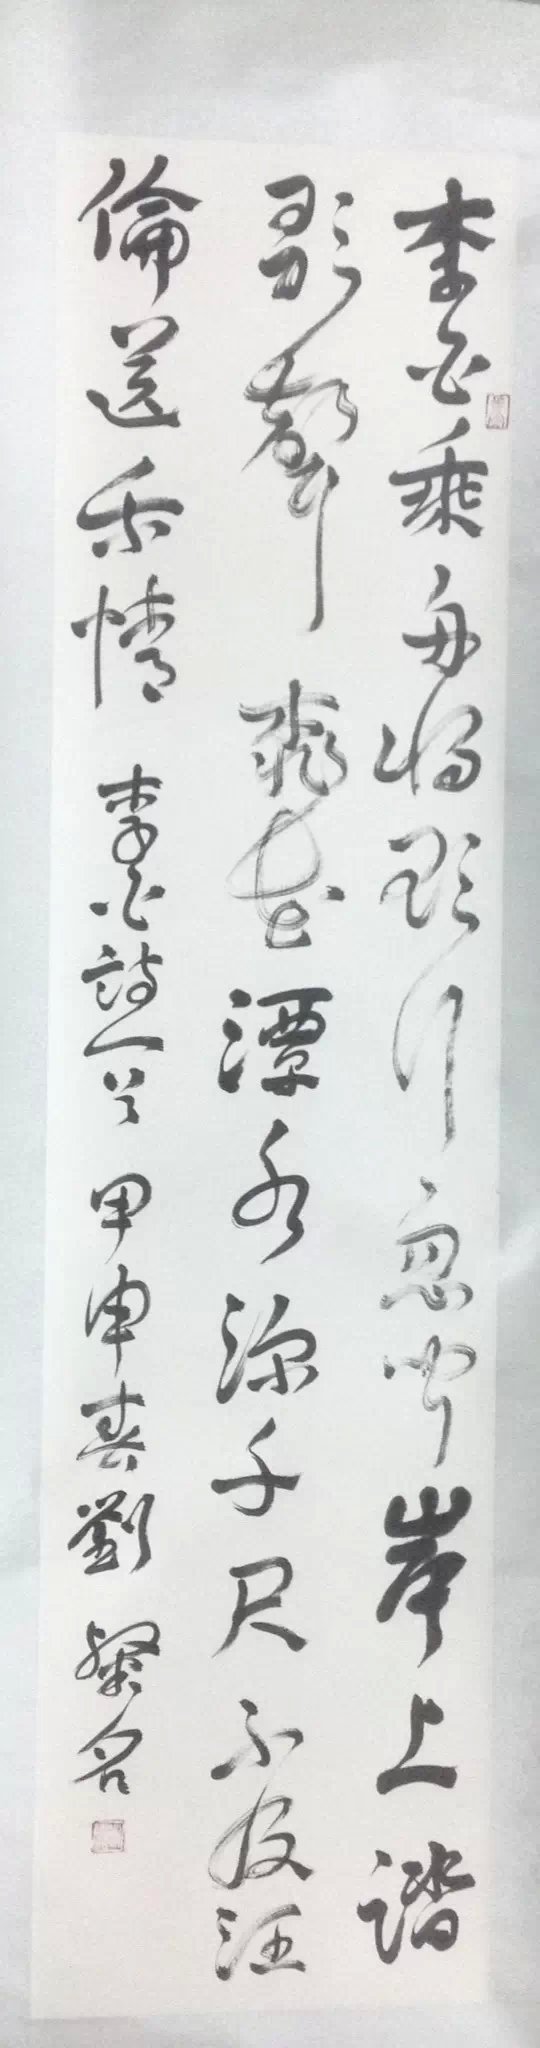 李白乘舟将欲行忽闻岸上踏
歌聲桃花潭水深千尺不及汪
倫送我情 李白詩一首 甲申春劉粲名